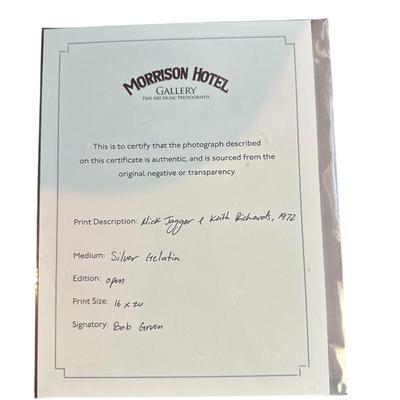 MORRISON HOTEL
GALLERY
FINE ART MUSIC PHOTOGRAPHY
This is to certify that the photograph described
on this certificate is authentic, and is sourced from the
original negative or transparency.
Print Description: Mick Jagger & Keith Richards, 1972
Medium: Silver Gelatin
Edition: open
Print Size: 16 x 20
Signatory: Bob Gruen